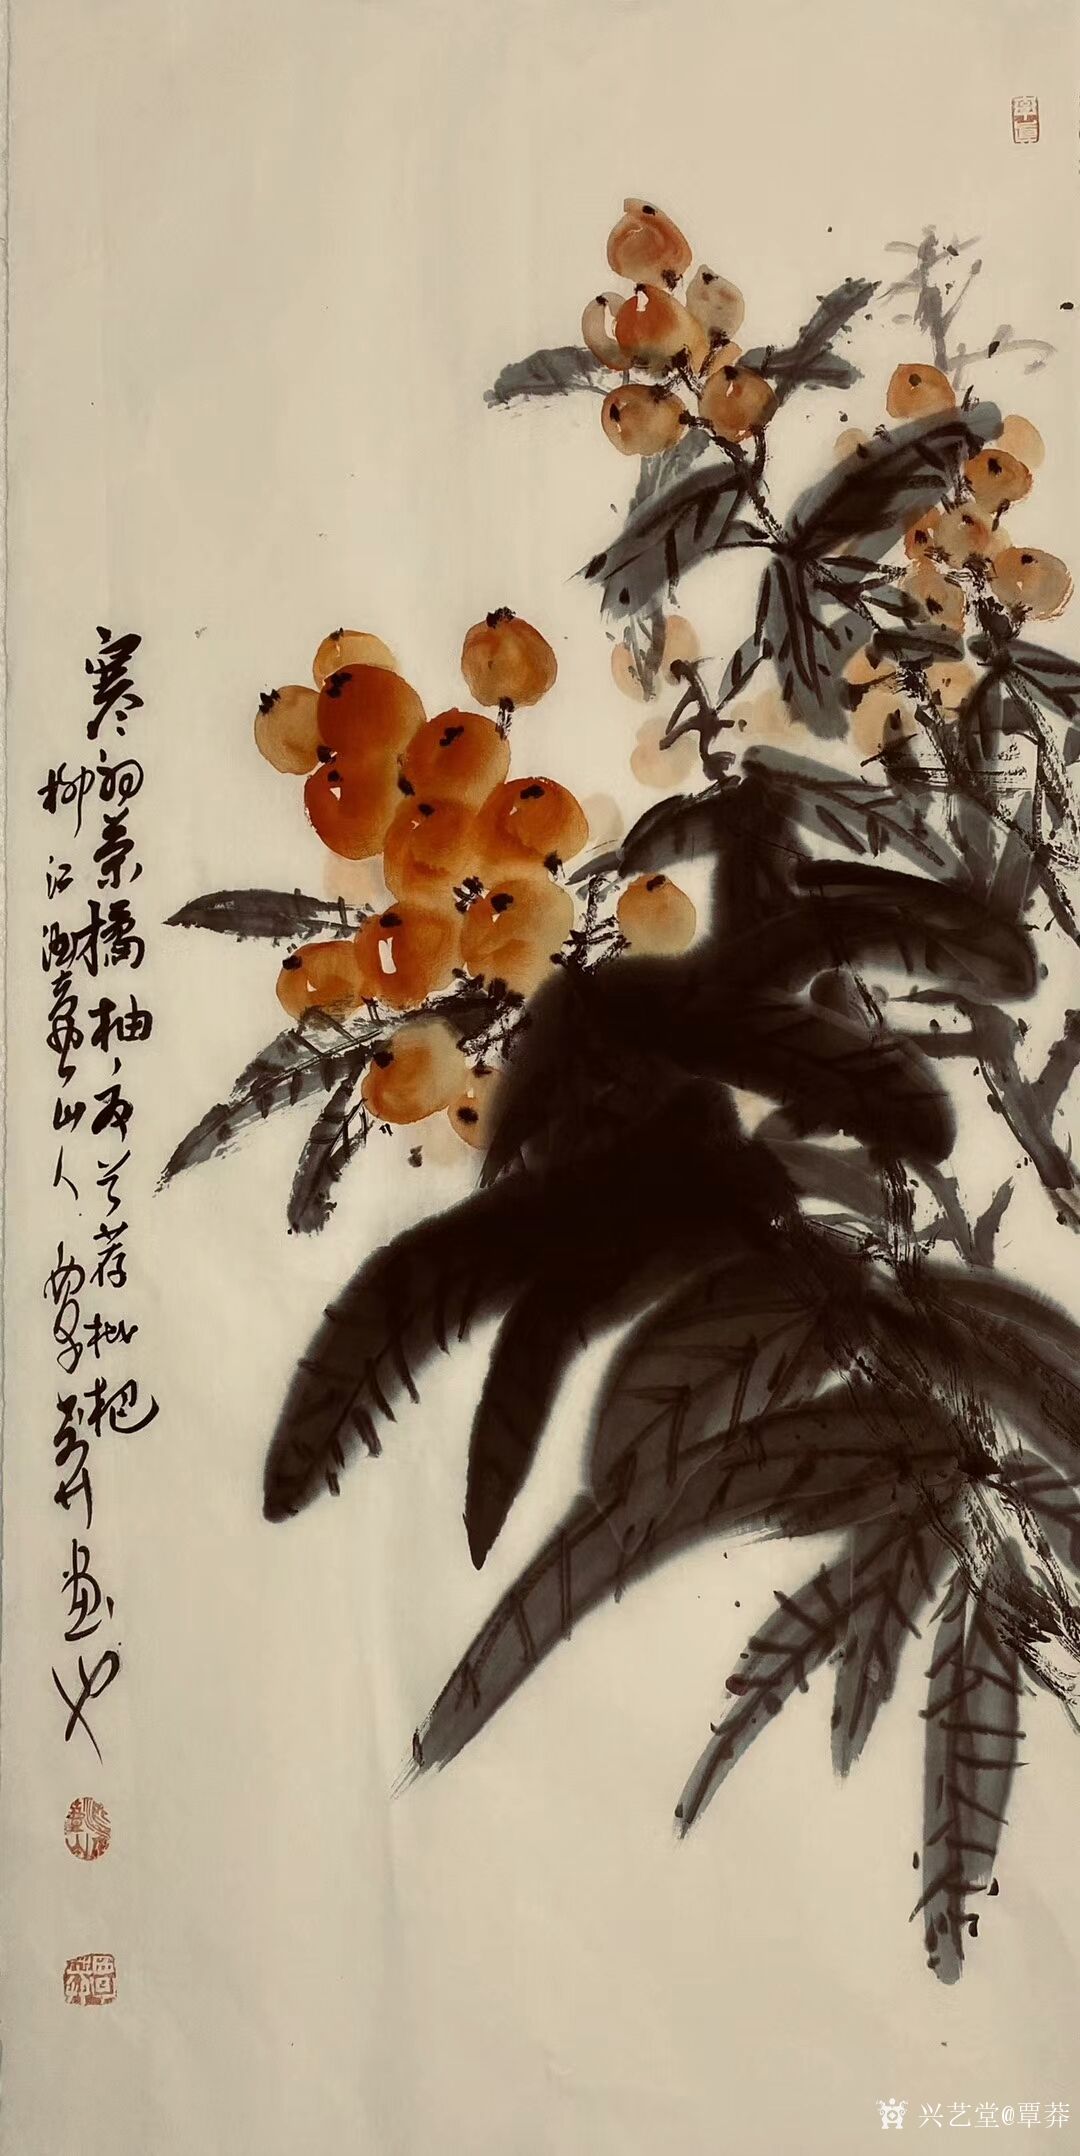 寒初荣橘柚夏首荐枇杷
柳江酒童山人覃莽画也
兴艺堂@覃莽